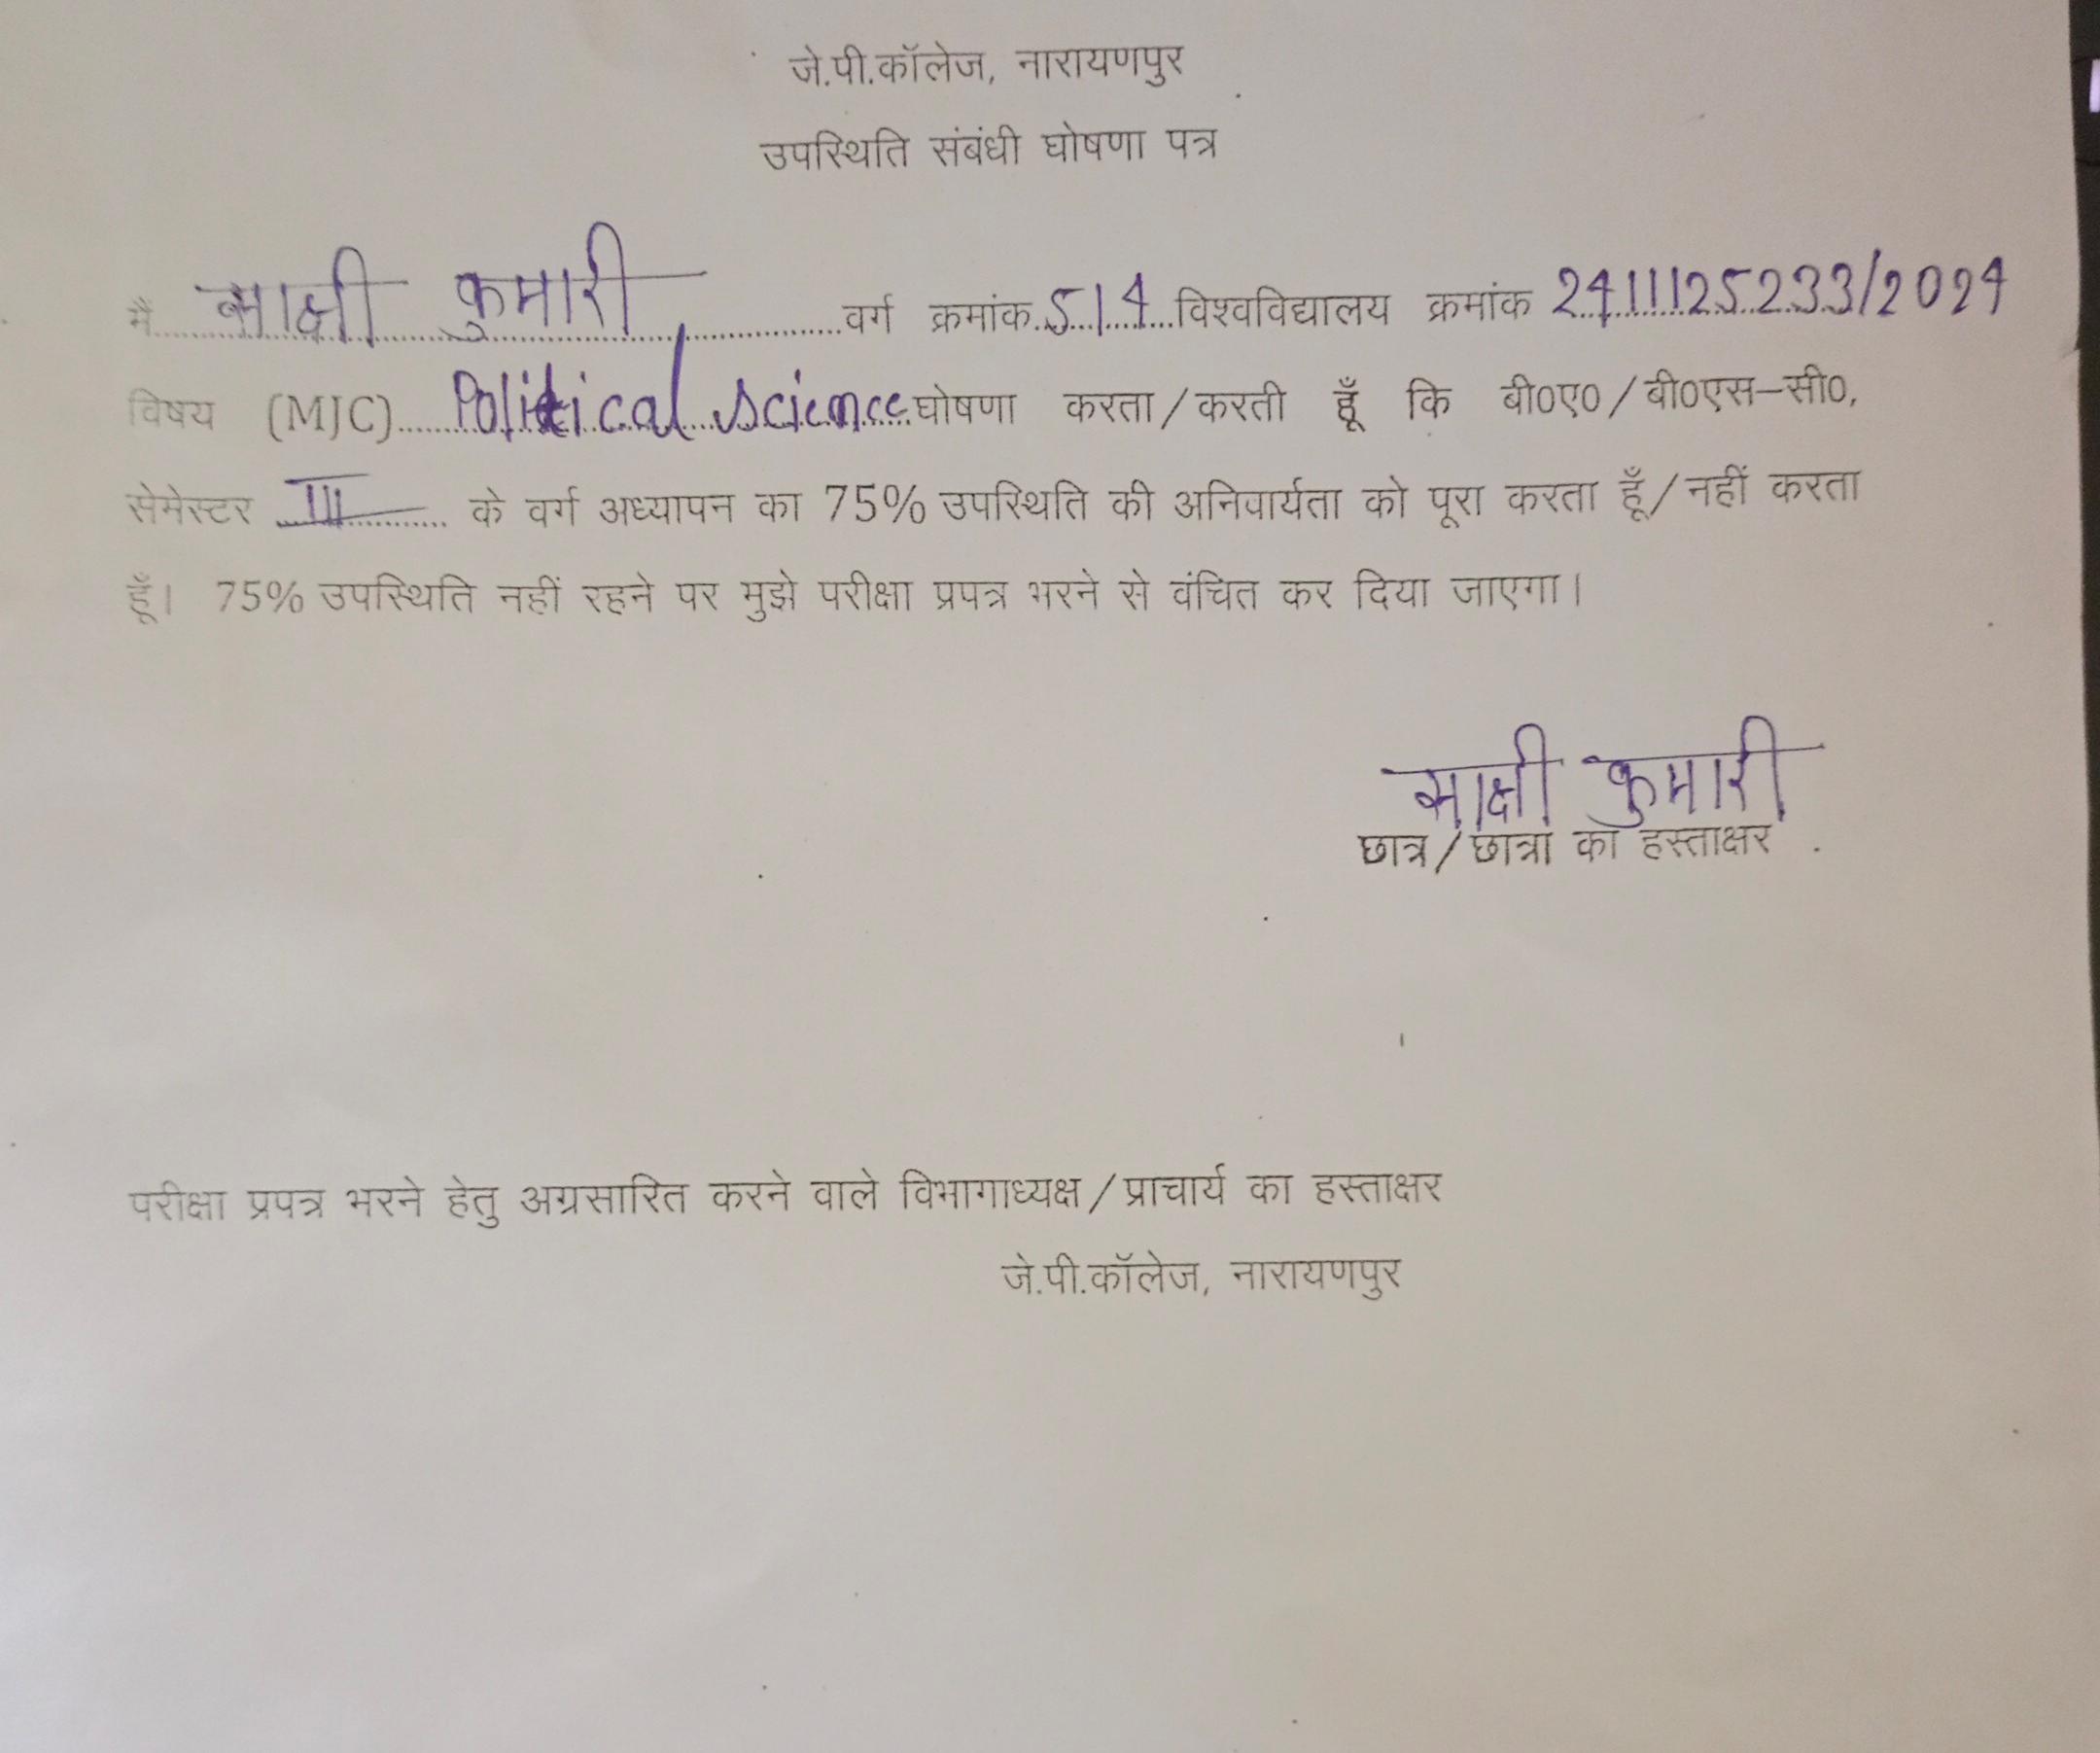 जे.पी.कॉलेज, नारायणपुर
उपस्थिति संबंधी घोषणा पत्र
मैं साक्षी कुमारी वर्ग क्रमांक 514 विश्वविद्यालय क्रमांक 24111125233/2024
विषय (MJC) Political science घोषणा करता/करती हूँ कि बी०ए०/बी०एस-सी०,
सेमेस्टर III के वर्ग अध्यापन का 75% उपस्थिति की अनिवार्यता को पूरा करता हूँ/नहीं करता
हूँ। 75% उपस्थिति नहीं रहने पर मुझे परीक्षा प्रपत्र भरने से वंचित कर दिया जाएगा।
साक्षी कुमारी
छात्र/छात्रा का हस्ताक्षर
परीक्षा प्रपत्र भरने हेतु अग्रसारित करने वाले विभागाध्यक्ष/प्राचार्य का हस्ताक्षर
जे.पी.कॉलेज, नारायणपुर